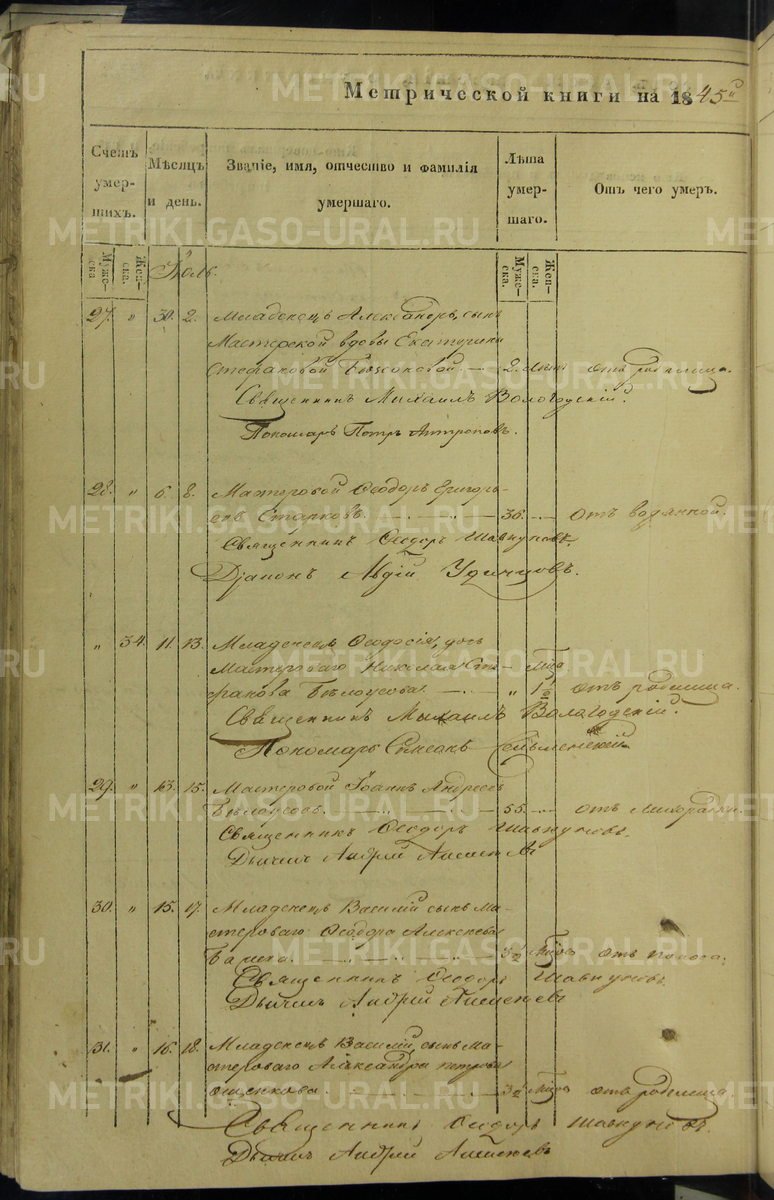 Метрической книги на 1845й
Счетъ умершихъ.
Мѣсяцъ и день.
Званіе, имя, отчество и фамилія умершаго.
Лѣта умершаго.
Отъ чего умеръ.
Мужеска
Женска.
Мужеска.
Женска.
Іюль.
27. " 30. 2. Младенецъ Александръ, сынъ
Мастерской вдовы Екатерины
Стефановой 2. лѣтъ отъ родимца.
Священникъ Михаилъ Вологодскій.
Пономарь Петръ Антроповъ.
28. " 6. 8. Мастеровой Ѳеодоръ Григорь-
евъ Старковъ. 36. отъ водянной.
Священникъ Ѳеодоръ Шавкуновъ.
Діаконъ Авдій Удинцовъ.
" 34. 11. 13. Младенецъ Ѳеодосія, дочь
Мастероваго Николая Сте- Мѣс
фанова Бѣлоусова. " 1½ отъ родимца.
Священникъ Михаилъ Вологодскій.
Пономарь Сельменскій
29. " 13. 15. Мастеровой Іоаннъ Андреевъ
Бѣлоусовъ. 55. отъ лихорадки.
Священникъ Ѳеодоръ Шавкуновъ.
Дьячекъ Андрей
30. " 15. 17. Младенецъ Василій сынъ Ма-
стероваго Ѳеодора Алексѣева
3½ Мѣсо отъ поноса.
Священникъ Ѳеодоръ Шавкуновъ.
Дьячекъ Андрей
31. " 16. 18. Младенецъ Василій, сынъ Ма-
стероваго Александра Петрова
3½ Мѣсо отъ родимца.
Священникъ Ѳеодоръ Шавкуновъ.
Дьячекъ Андрей
METRIKI.GASO-URAL.RU